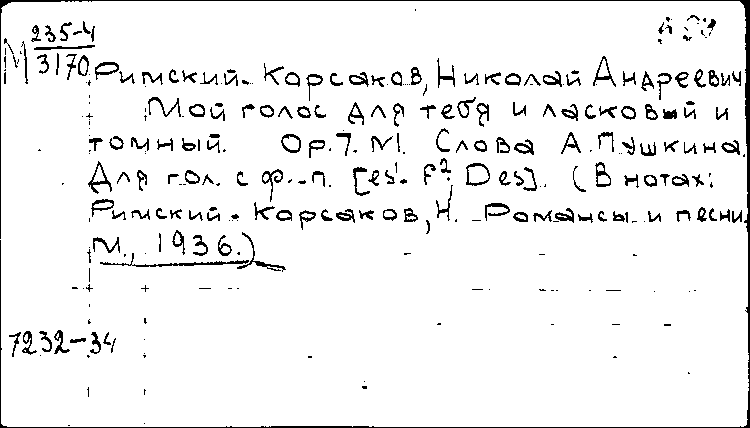 М 235-4
3170
Римский-Корсаков, Николай Андреевич
Мой голос для тебя и ласковый и
томный. Op.7. М. Слова А.Пушкина.
Для гол. с ф.-п. [es¹-f², Des]. (В нотах:
Римский-Корсаков, Н. Романсы и песни.
М., 1936.)
7232-34